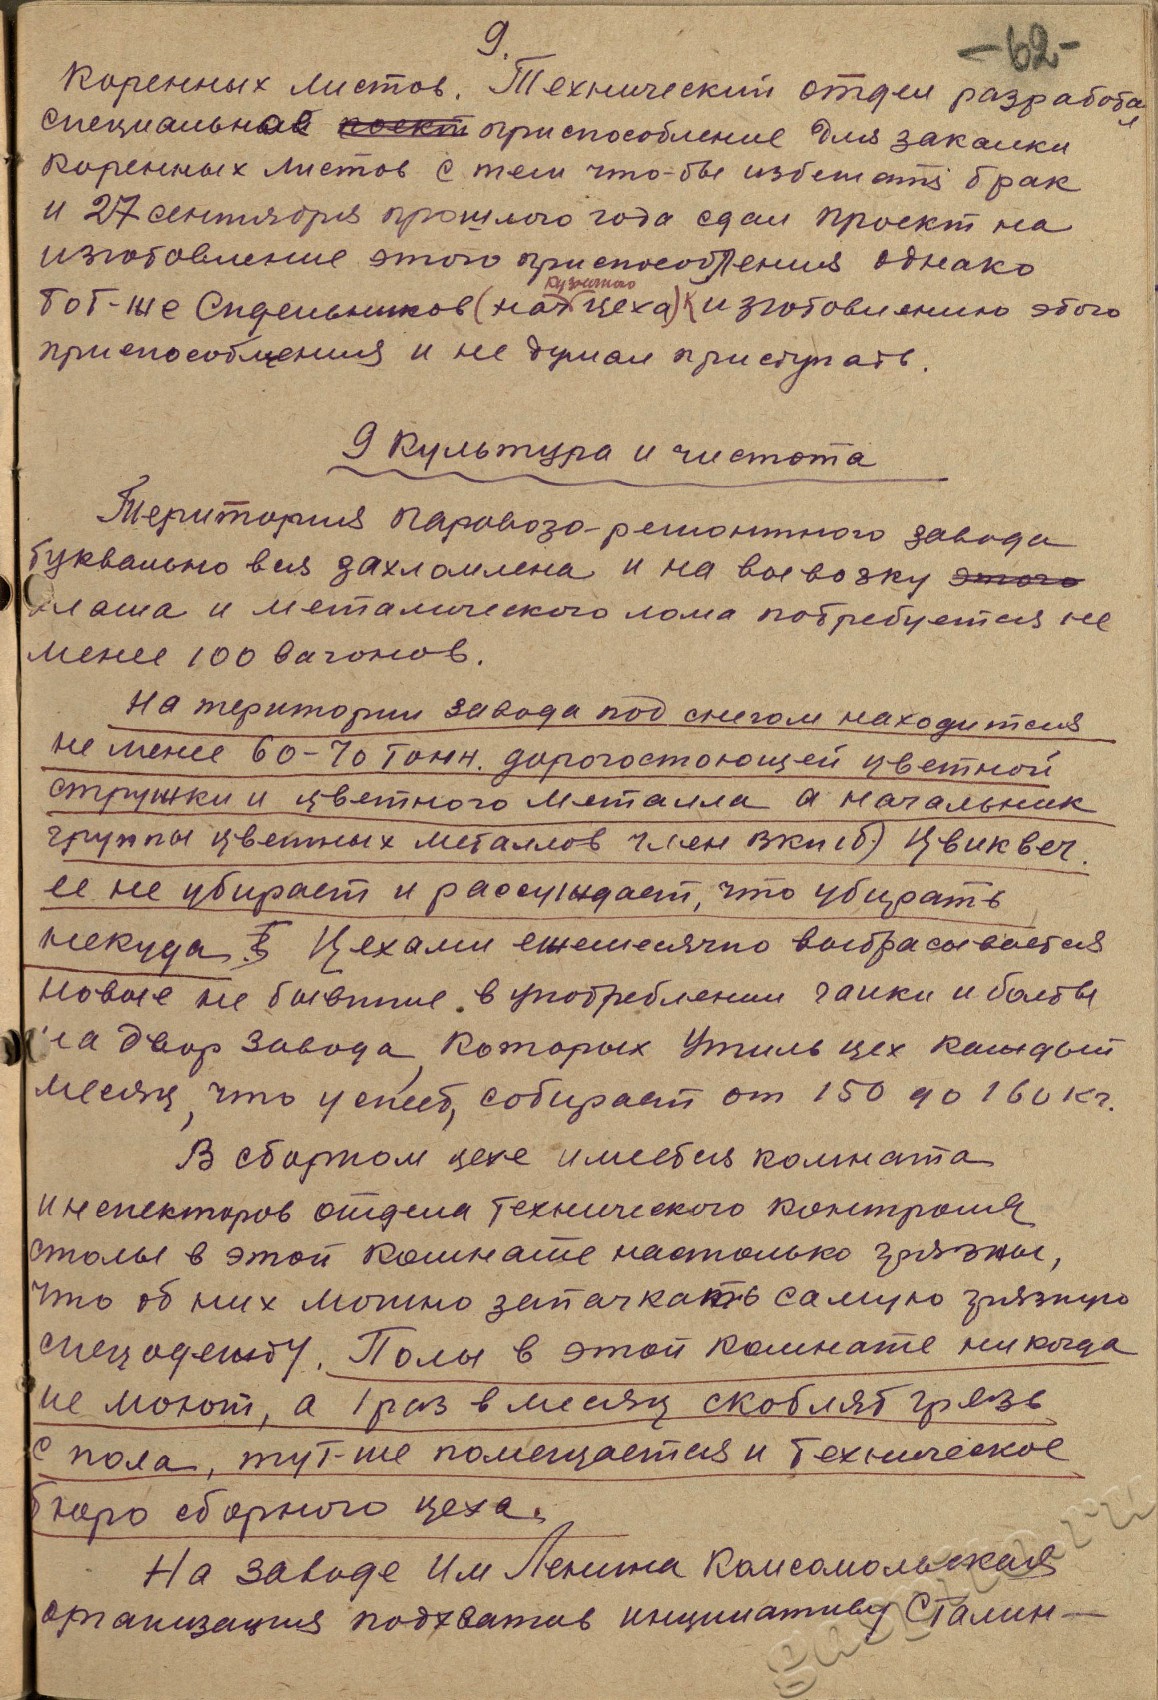 9.
-62-
коренных листов. Технический отдел разработал
специальное проект приспособление для закалки
коренных листов с тем что-бы избежать брак
и 27 сентября прошлого года сдал проект на
изготовление этого приспособления однако
кузнечного
тот-же Сидельников (нач цеха) к изготовлению этого
приспособления и не думал приступать.
9 Культура и чистота
Територия паровозо-ремонтного завода
буквально вся захламлена и на вывозку этого
хлама и металического лома потребуется не
менее 100 вагонов.
На територии завода под снегом находится
не менее 60-70 тонн. дорогостоющей цветной
стружки и цветного металла а начальник
группы цветных металлов член ВКП(б) Цвиквеч.
ее не убирает и рассуждает, что убирать
некуда. Цехами ежемесячно выбрасывается
новые не бывшие в употреблении гайки и болты
на двор завода, которых Утиль цех каждый
месяц, что успеет, собирает от 150 до 160 кг.
В сборном цехе имеется комната
инспекторов отдела технического контроля
столы в этой комнате настолько грязны,
что об них можно запачкать самую грязную
спецодежду. Полы в этой комнате никогда
не моют, а 1 раз в месяц скоблят грязь
с пола, тут-же помещается и техническое
бюро сборного цеха.
На заводе им Ленина Комсомольская
организация подхватив инциативу Сталин-